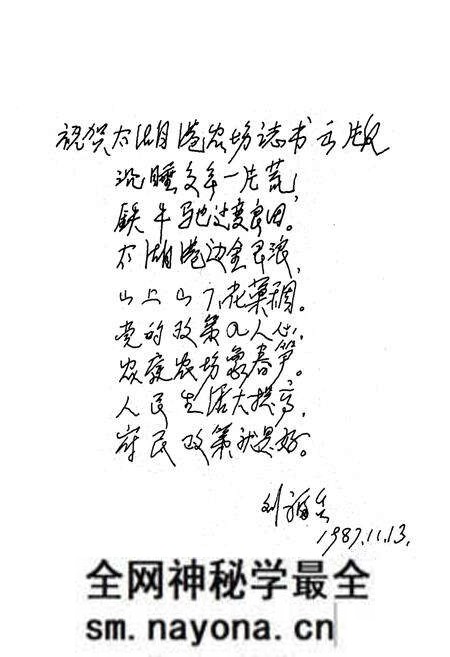 祝贺太湖港农场志书出版
沉睡多年一片荒,
铁牛驰过变良田。
太湖港边金浪,
山上山下花菓稠。
党的政策入人心,
家庭农场象春笋。
人民生活大提高,
富民政策就是好。
刘福
1987.11.13.
全网神秘学最全
sm.nayona.cn